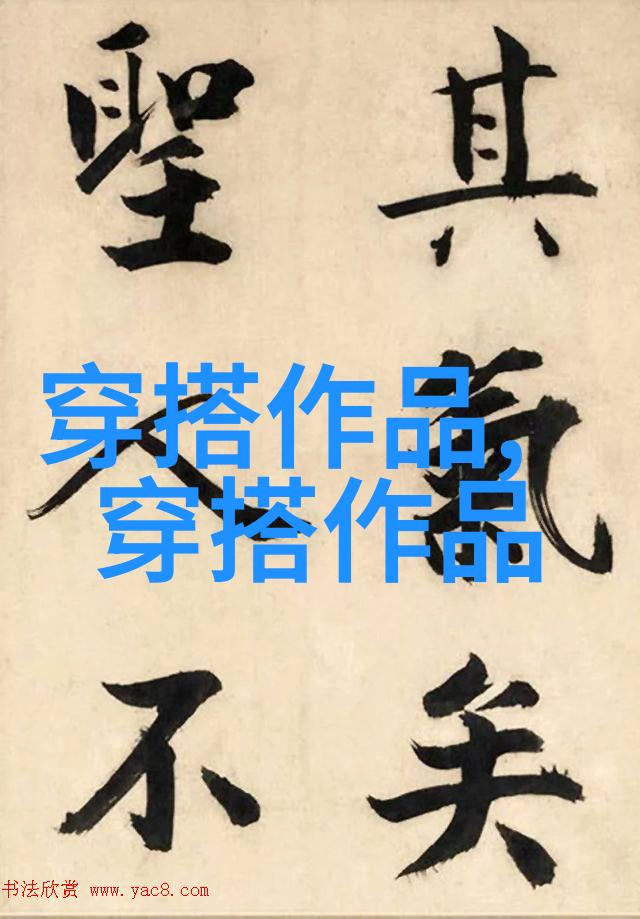 其氣矣
聖人不
穿搭作品,
穿搭作品
书法欣赏 www.yac8.com